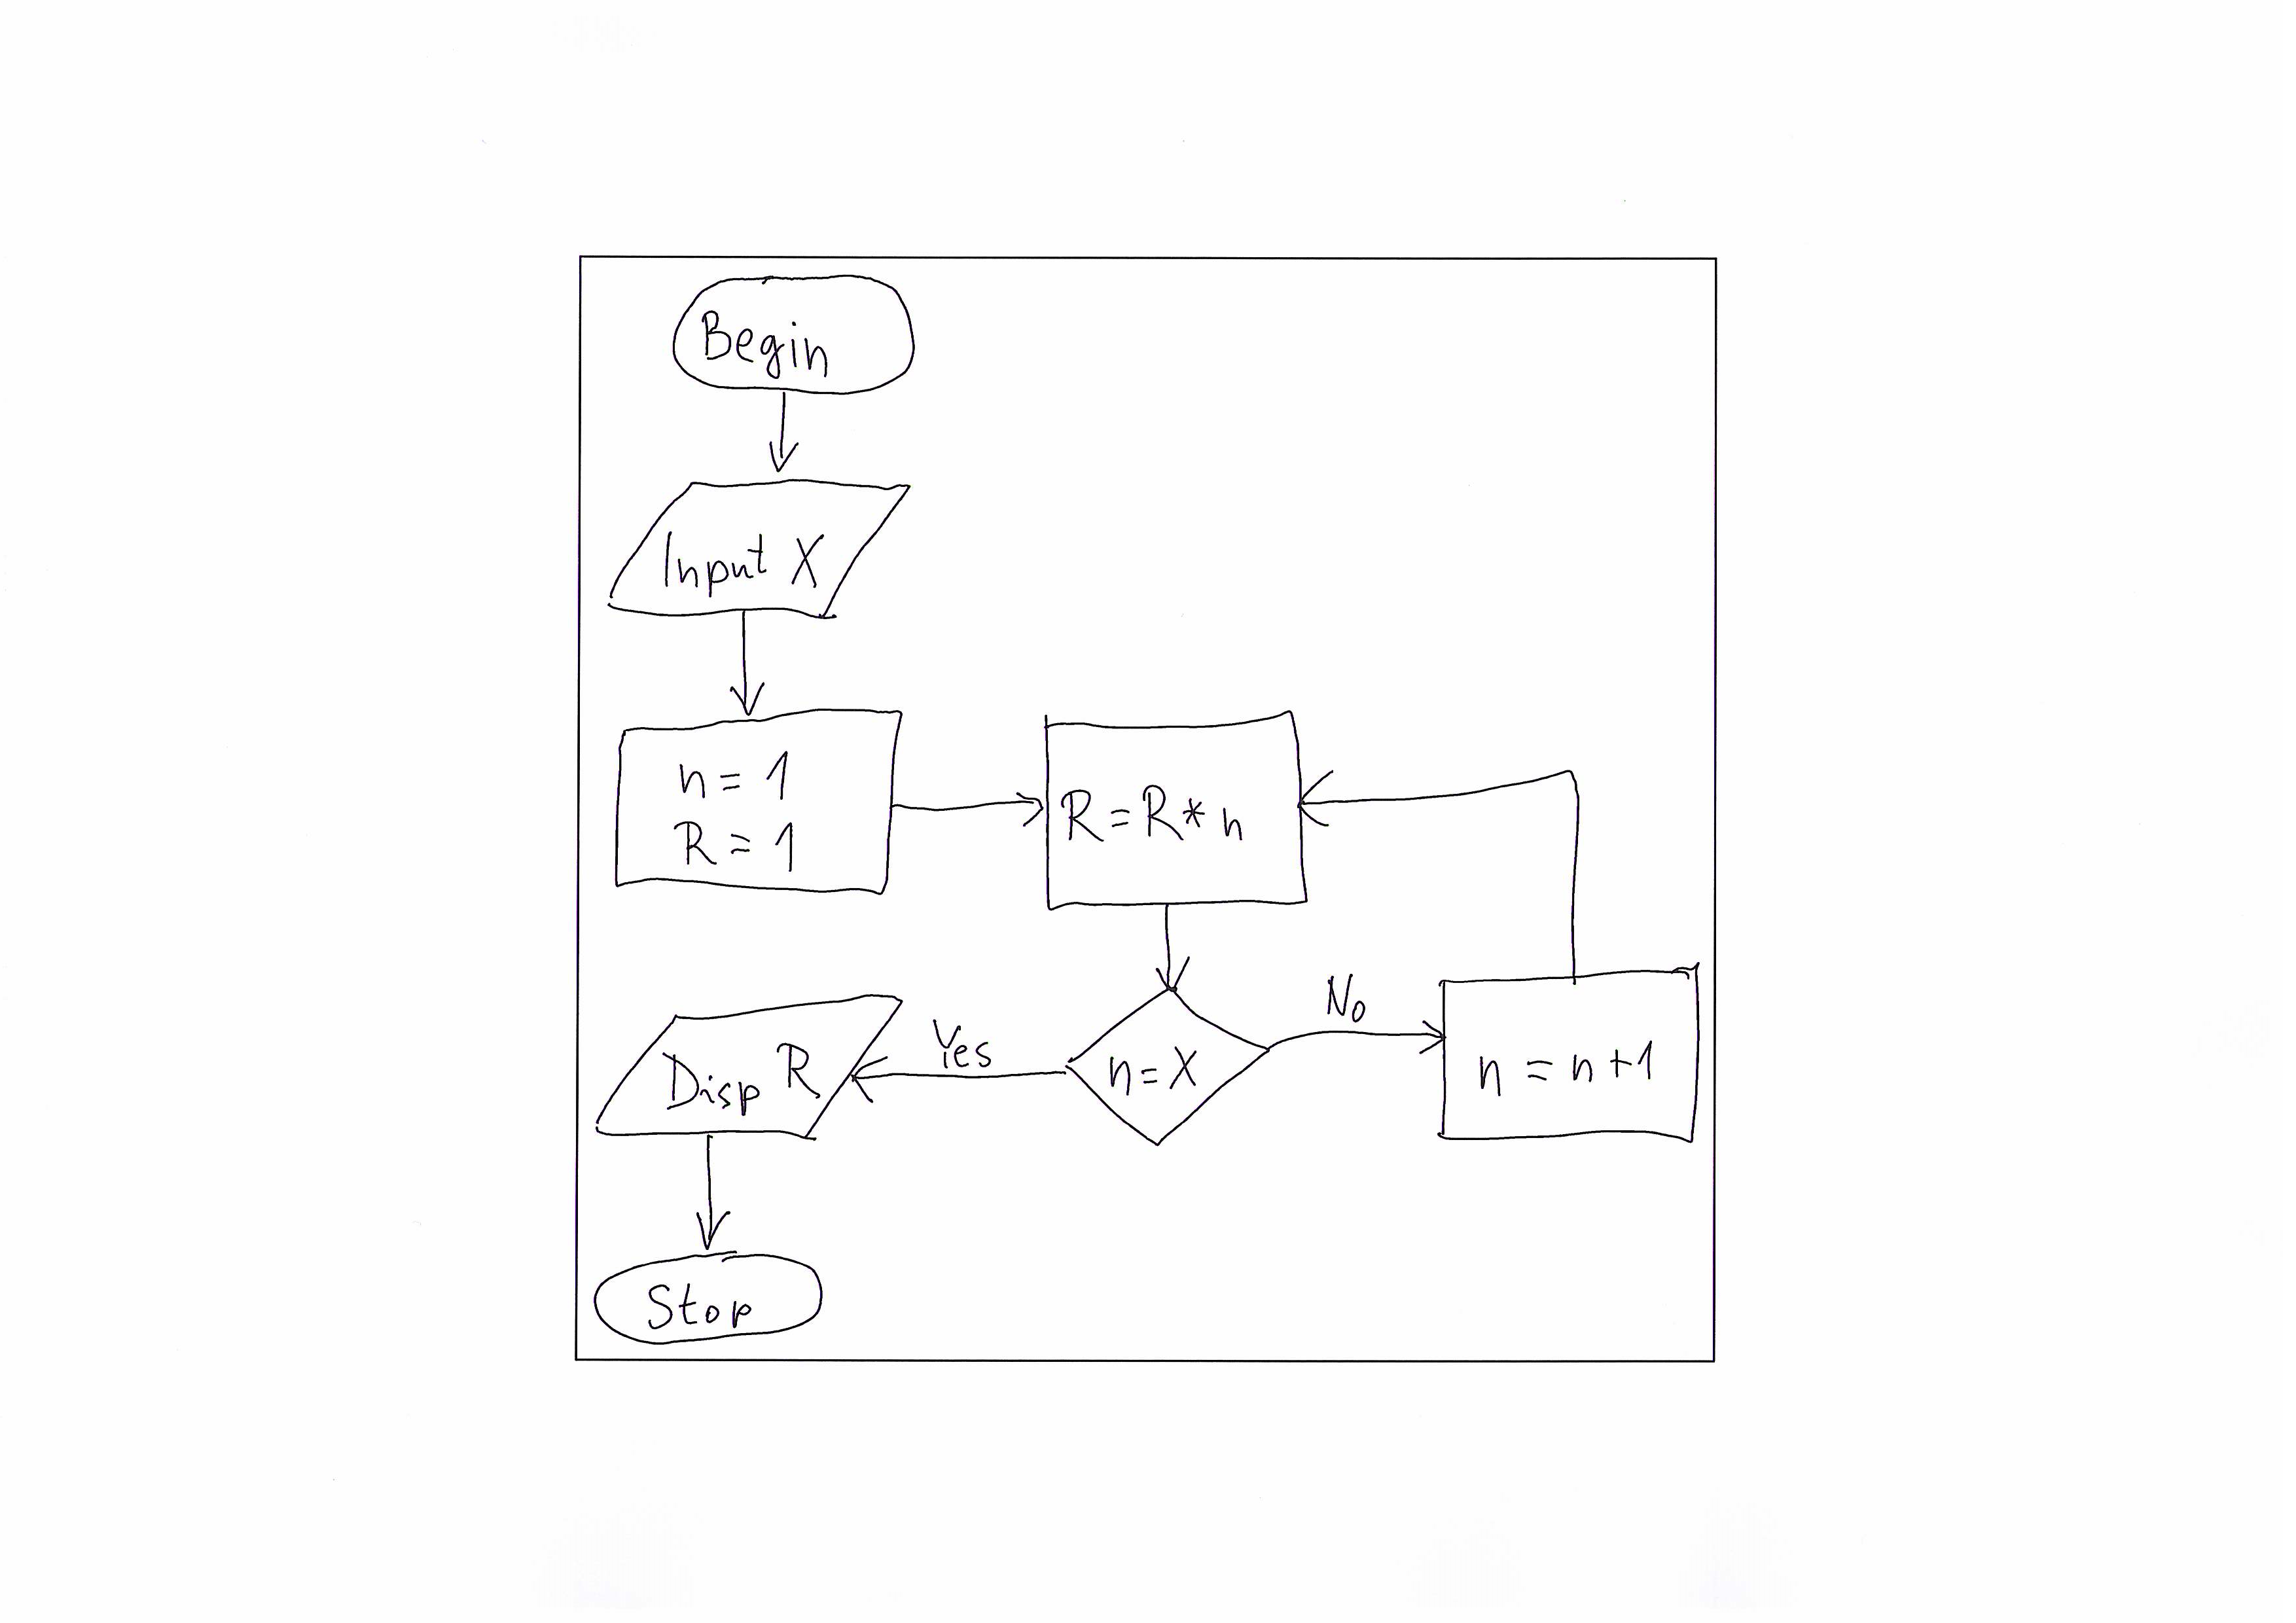 Begin
Input X
n = 1
R = 1
R = R * n
n = X
Yes
No
n = n + 1
Disp R
Stop